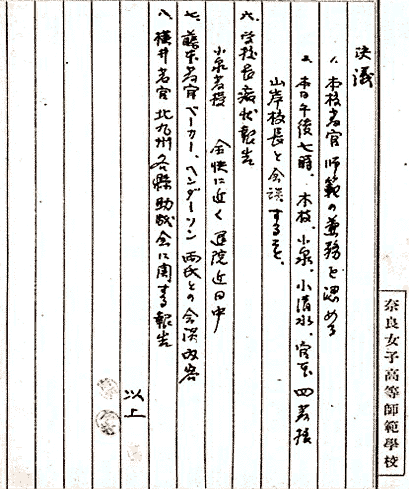 決議
1、本校書官師範の兼務を認める
2、本日午後七時、木枝、小泉、小清水、宮本四教授
山岸校長と会談すること、
六、学校長病状報告
小泉教授 全快に近く退院近日中
七、藤本書官ベーカー、ヘンダーソン両氏との会談内容
八、横井書官北九州各縣助成会に関する報告
以上
奈良女子高等師範學校